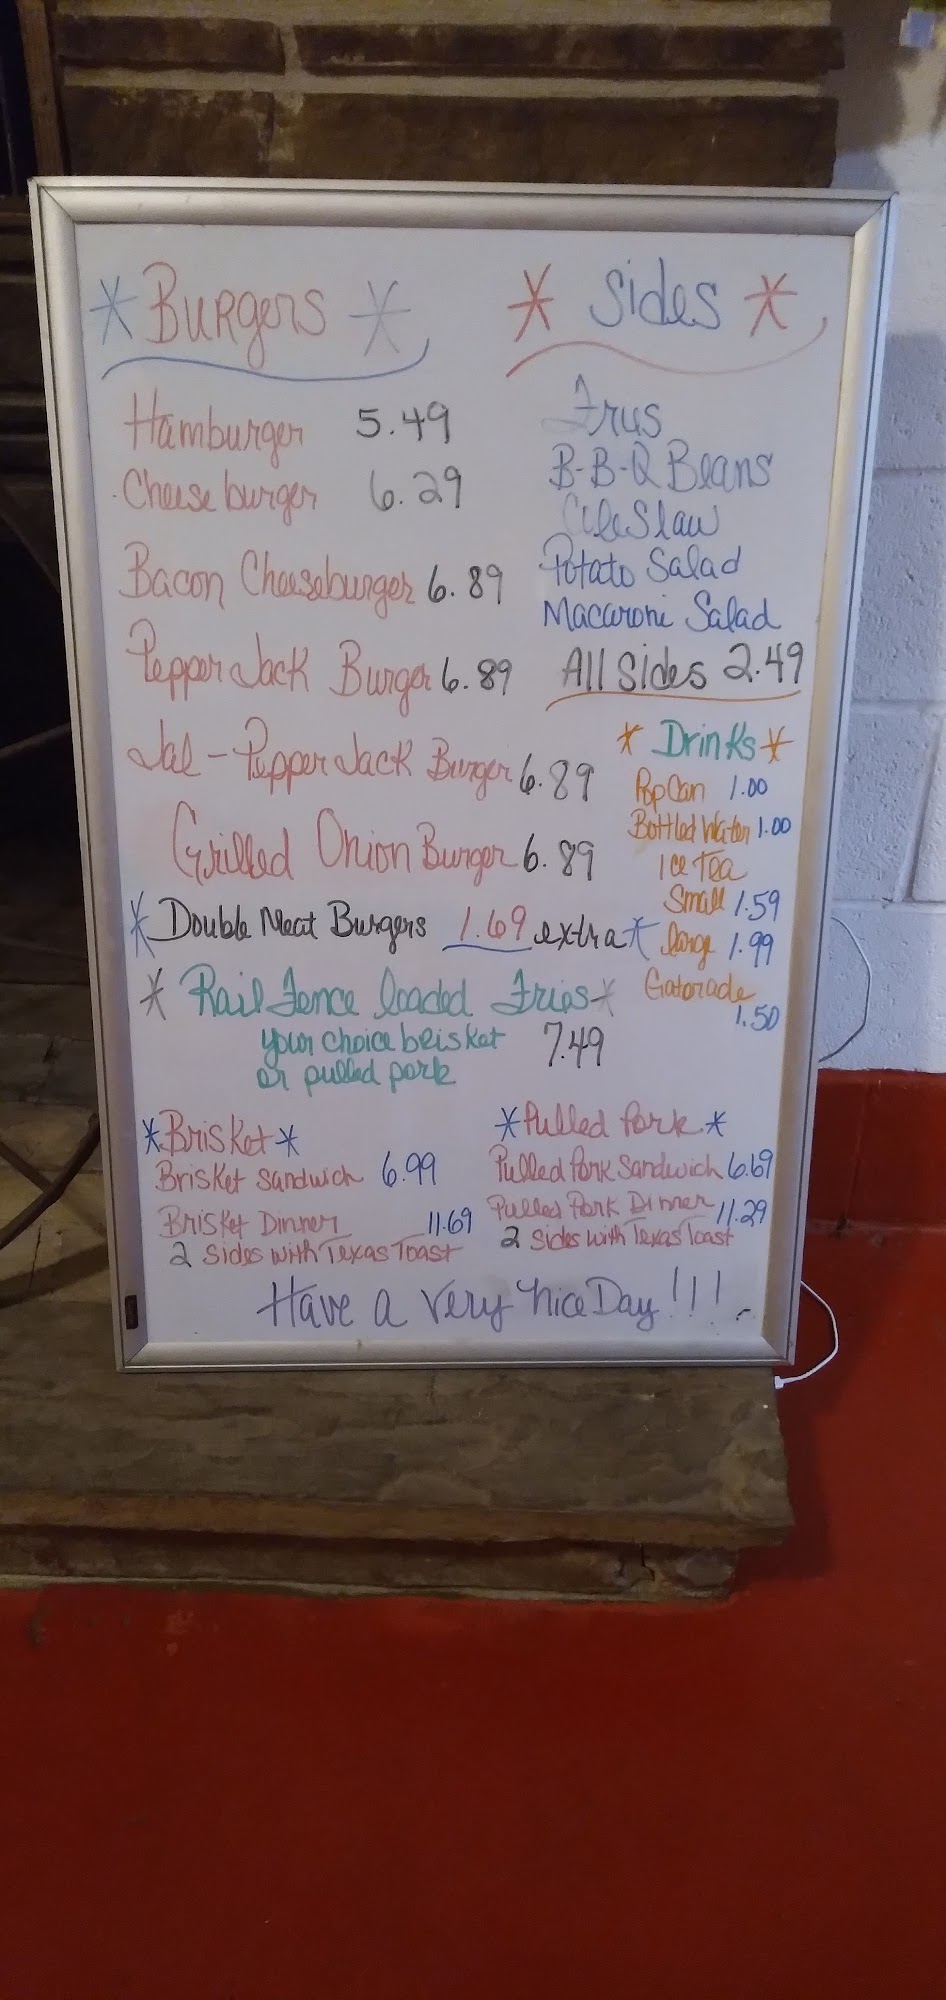 * Burgers *
Hamburger 5.49
Cheeseburger 6.29
Bacon Cheeseburger 6.89
Pepper Jack Burger 6.89
Jal-Pepper Jack Burger 6.89
Grilled Onion Burger 6.89
* Double Meat Burgers 1.69 extra *
* Sides *
Frys
B-B-Q Beans
Cole Slaw
Potato Salad
Macaroni Salad
All Sides 2.49
* Drinks *
Pop Can 1.00
Bottled Water 1.00
Ice Tea
Small 1.59
large 1.99
Gatorade
1.50
* Rail Fence loaded Fries *
your choice brisket 7.49
or pulled pork
* Brisket *
Brisket Sandwich 6.99
Brisket Dinner 11.69
2 Sides with Texas Toast
* Pulled Pork *
Pulled Pork Sandwich 6.69
Pulled Pork Dinner 11.29
2 Sides with Texas Toast
Have a very nice Day!!!